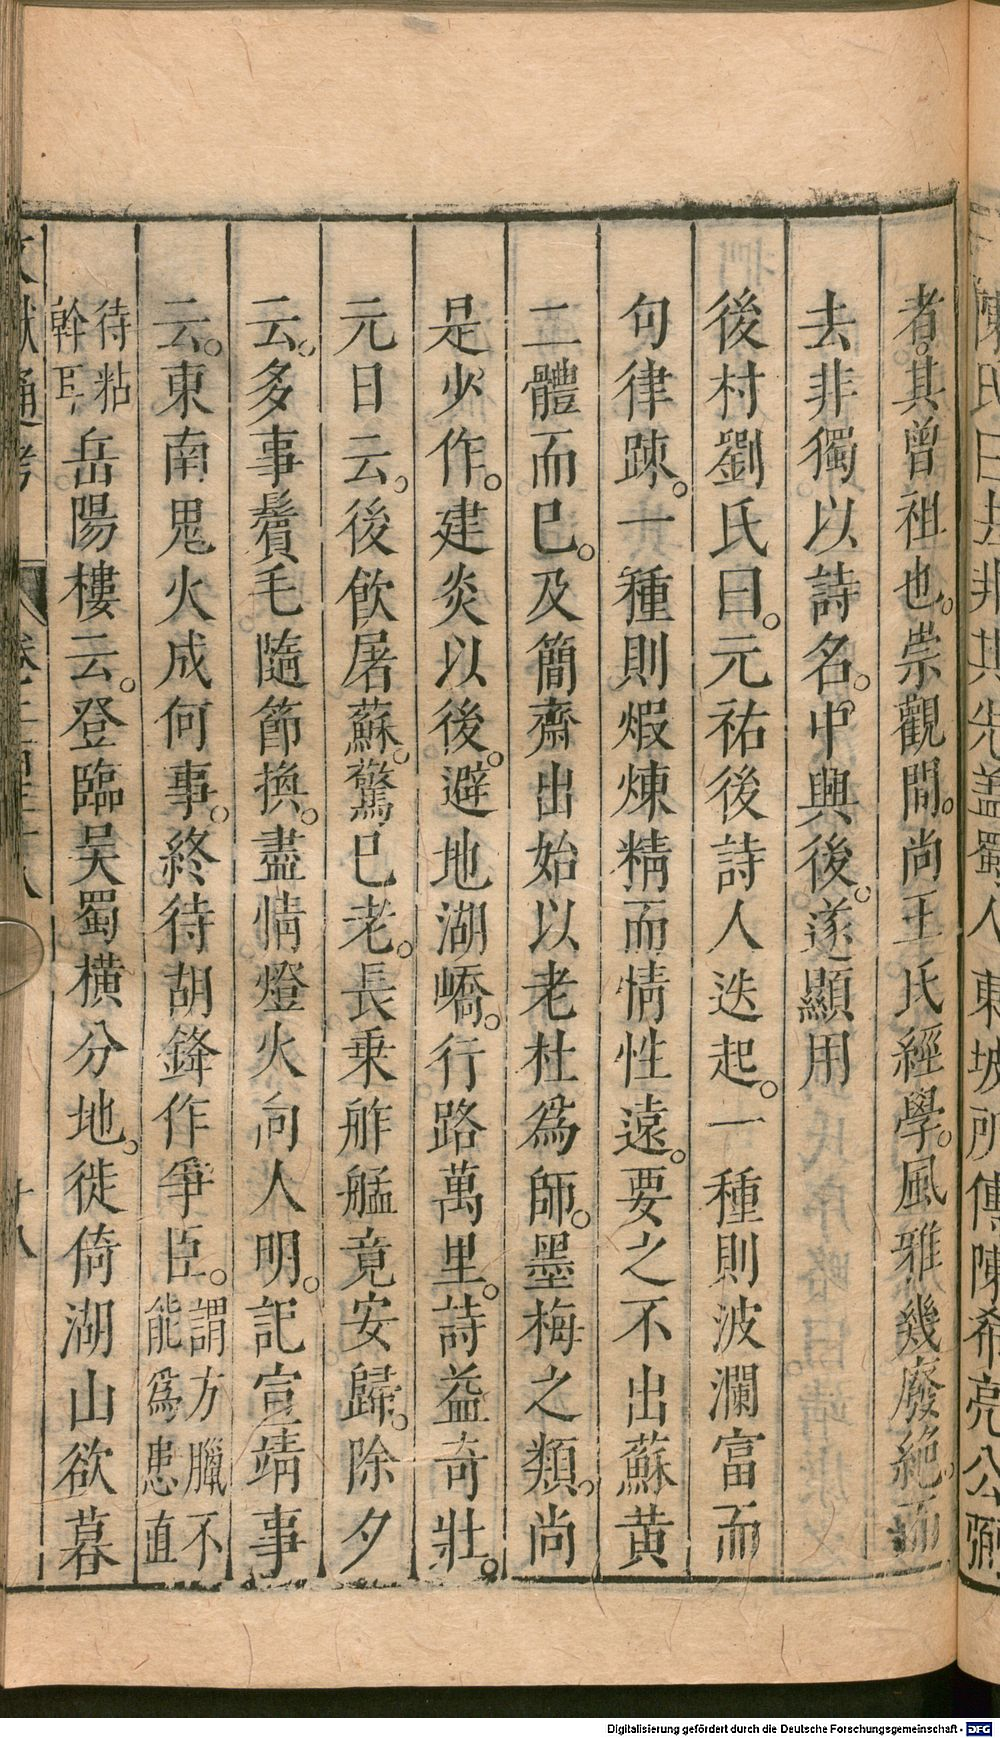 陳氏曰去非其先蓋蜀人東坡所傳陳希亮公弼
者其曾祖也崇觀間尚王氏經學風雅幾廢絕而
去非獨以詩名中興後遂顯用
後村劉氏曰元祐後詩人迭起一種則波瀾富而
句律踈一種則煆煉精而情性遠要之不出蘇黃
二體而巳及簡齋出始以老杜爲師墨梅之類尚
是少作建炎以後避地湖嶠行路萬里詩益奇壯
元日云後飲屠蘇驚巳老長乗舴艋竟安歸除夕
云多事鬢毛隨節換盡情燈火向人明記宣靖事
云東南鬼火成何事終待胡鋒作爭臣謂方臘不能爲患直
待粘幹耳岳陽樓云登臨吴蜀橫分地徙倚湖山欲暮
文獻通考 卷二百四十八 十八
Digitalisierung gefördert durch die Deutsche Forschungsgemeinschaft - DFG